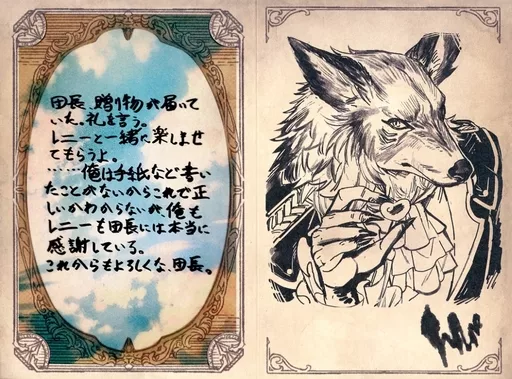 団長、贈り物が届いて
いた。礼を言う。
レニーと一緒に楽しませ
てもらうよ。
……俺は手紙など書い
たことがないからこれで正
しいかわからないが、俺も
レニーも団長には本当に
感謝している。
これからもよろしくな、団長。